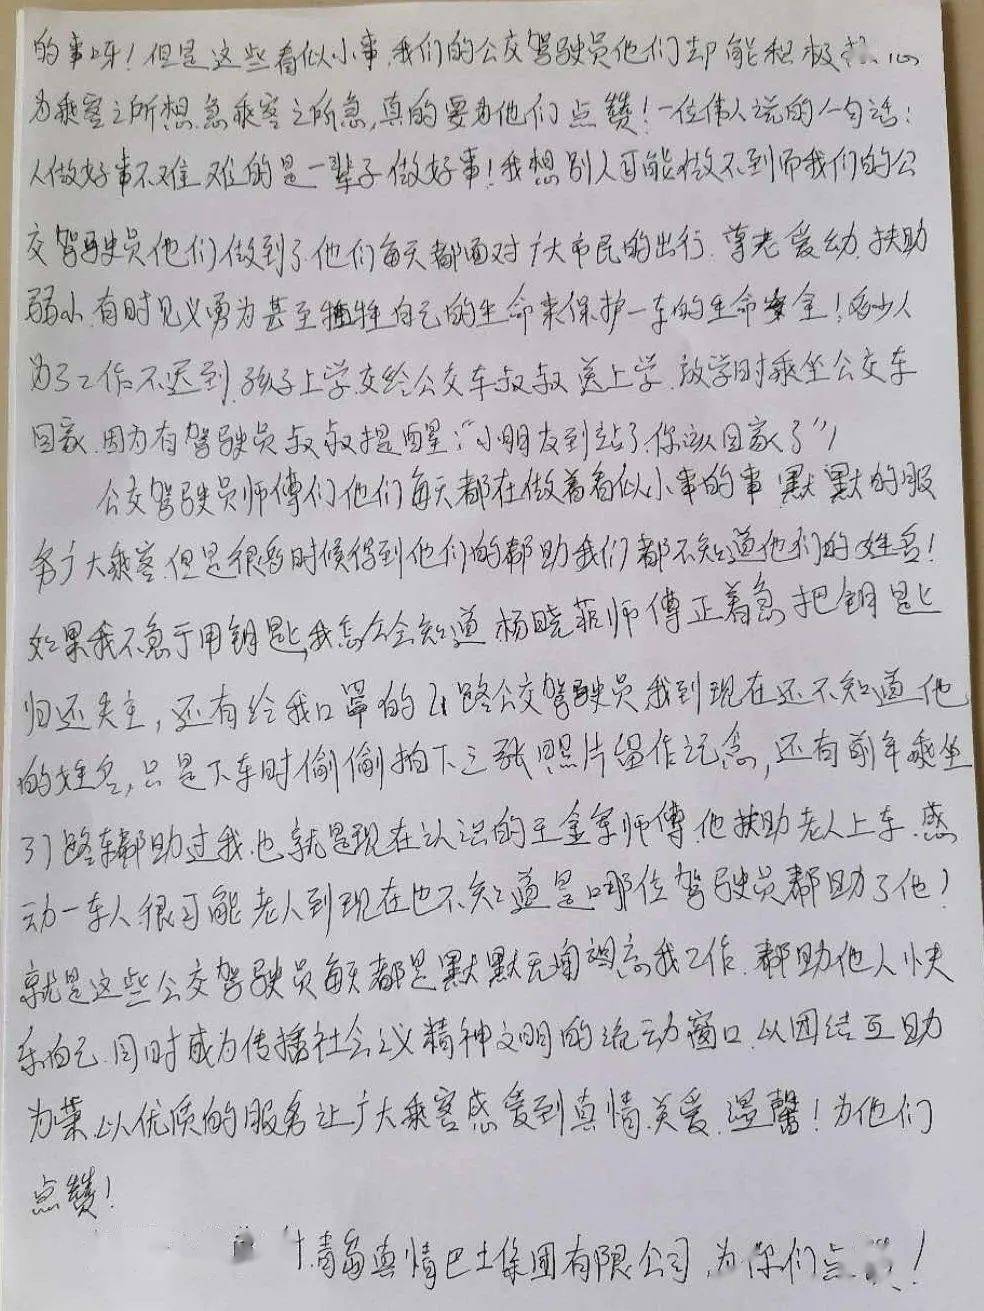 的事呀！但是这些看似小事，我们的公交驾驶员他们却能积极
为乘客之所想，急乘客之所急，真的要为他们点赞！一位伟人说的一句话：
人做好事不难，难的是一辈子做好事！我想别人可能做不到而我们的公
交驾驶员他们做到了他们每天都面对广大市民的出行，尊老爱幼，扶助
弱小，有时见义勇为甚至牺牲自己的生命来保护一车的生命安全！多少人
为了工作不迟到，孩子上学交给公交车叔叔送上学，放学时乘坐公交车
回家，因为有驾驶员叔叔提醒：“小朋友到站了你该回家了”！
公交驾驶员师傅们他们每天都在做着看似小事的事，默默的服
务广大乘客，但是很多时候得到他们的帮助我们都不知道他们的姓名！
如果我不急于用钥匙，我怎么会知道杨晓菲师傅正着急把钥匙
归还失主，还有给我口罩的21路公交驾驶员我到现在还不知道他
的姓名，只是下车时偷偷拍下三张照片留作纪念，还有前年乘坐
31路车帮助过我，也就是现在认识的王金军师傅，他扶助老人上车，感
动一车人很可能老人到现在也不知道是哪位驾驶员帮助了他？
就是这些公交驾驶员每天都是默默无闻提高我工作，帮助他人快
乐自己，同时成为传播社会主义精神文明的流动窗口，以团结互助
为荣，以优质的服务让广大乘客感受到真情，关爱，温馨！为他们
点赞！
青岛真情巴士集团有限公司，为你们点赞！